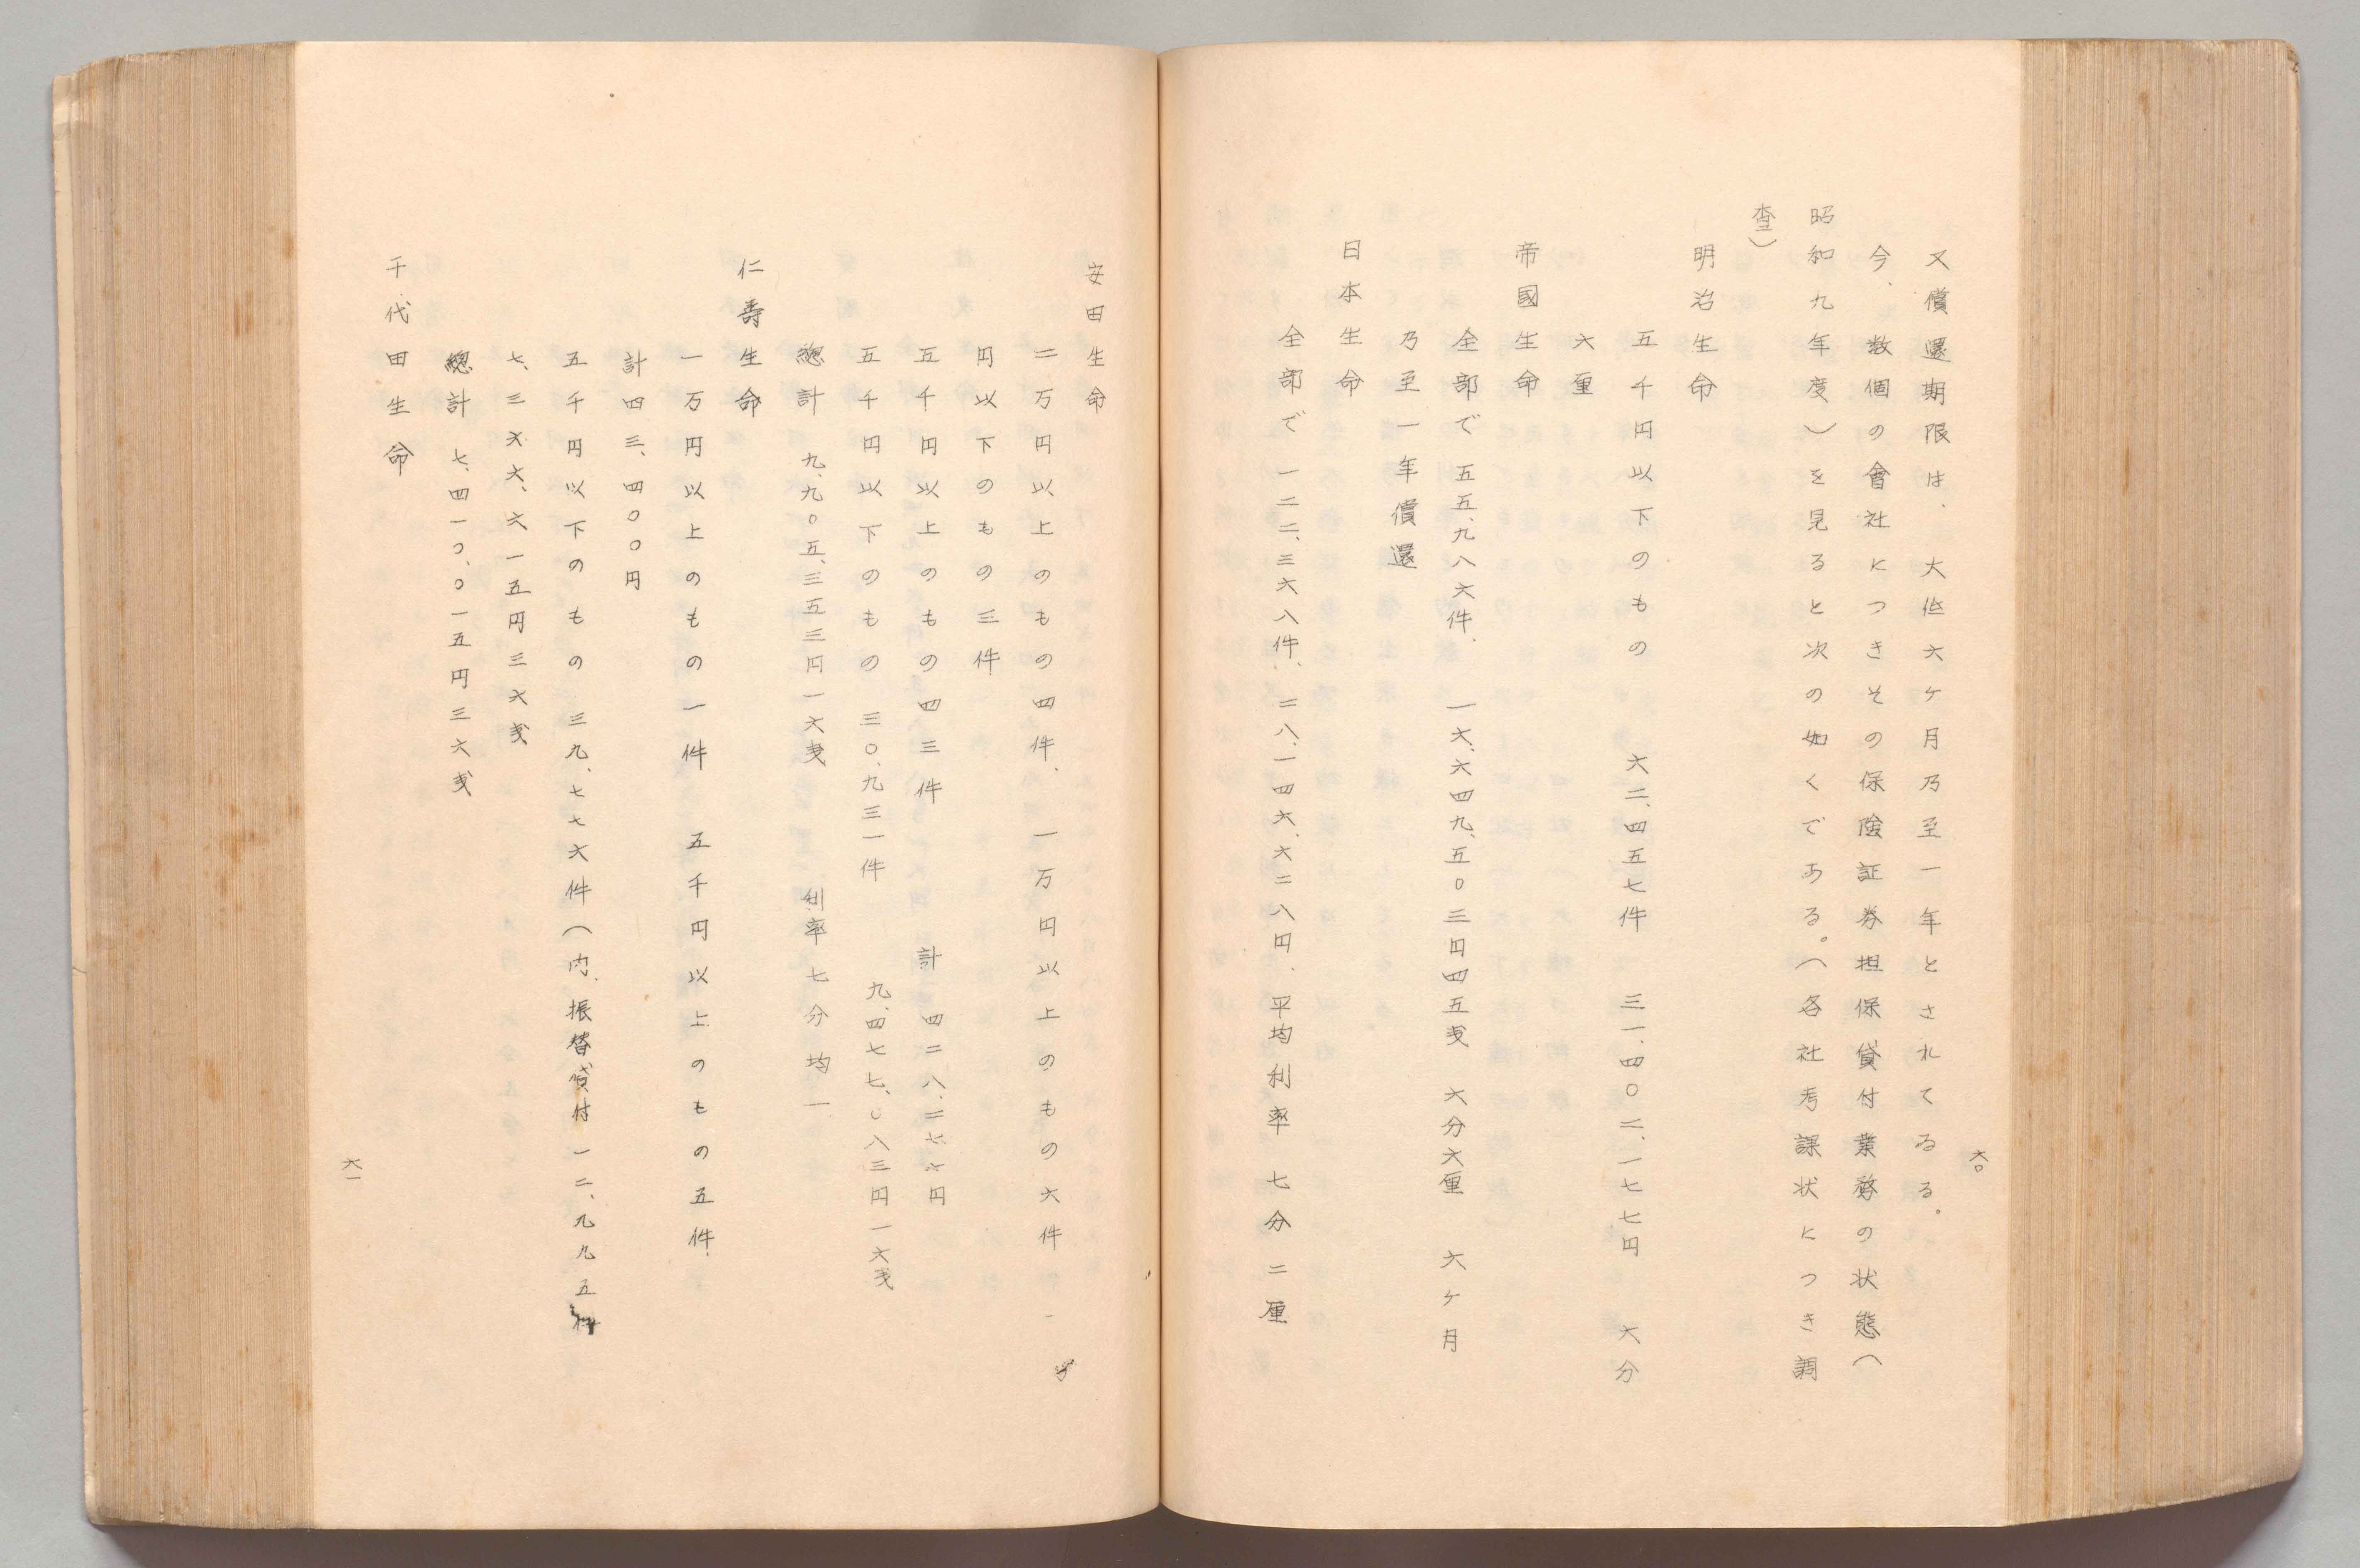 六〇
又償還期限は、大低六ケ月乃至一年とされてゐる。
今、数個の會社につきその保険証券担保貸付業務の状態（
昭和九年度）を見ると次の如くである。（各社考課状につき調
査）
明治生命
五千円以下のもの　六二、四五七件　三一、四〇二、一七七円　六分
六厘
帝國生命
全部で五五、九八六件、一六、六四九、五〇三円四五戋　六分六厘　六ケ月
乃至一年償還
日本生命
全部で一二二、三六八件、二八、一四六、六二八円、平均利率七分二厘
安田生命
二万円以上のもの四件、一万円以上のもの六件　一
円以下のもの三件
五千円以上のもの四三件　計四二八、二六六円
五千円以下のもの　三〇、九三一件　九、四七七、〇八三円一六戋
總計　九、九〇五、三五三円一六戋　利率七分均一
仁壽生命
一万円以上のもの一件　五千円以上のもの五件、
計四三、四〇〇円
五千円以下のもの　三九、七七六件（内、振替貸付一二、九九五件
七、三六六、六一五円三六戋
總計　七、四一〇、〇一五円三六戋
千代田生命
六一